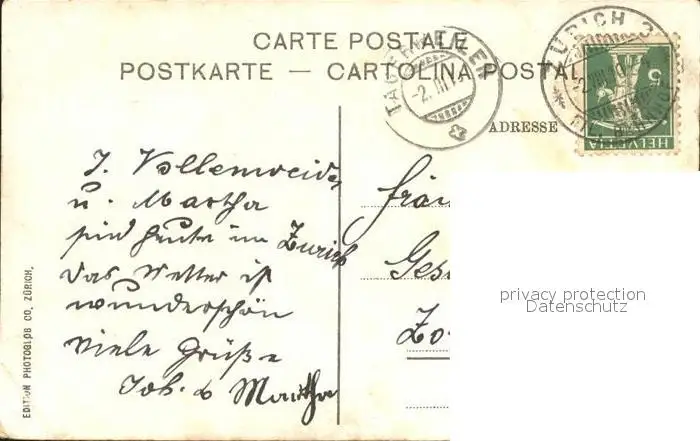 CARTE POSTALE
POSTKARTE — CARTOLINA POSTAL
ADRESSE
ZÜRICH
HELVETIA
5
J. Vollenweider
u. Martha
sind heute in Zürich
das Wetter ist
wunderschön
viele Grüße
Joh. & Martha
Fräu
Ges
Zo
EDITION PHOTOGLOB CO. ZÜRICH.
privacy protection
Datenschutz